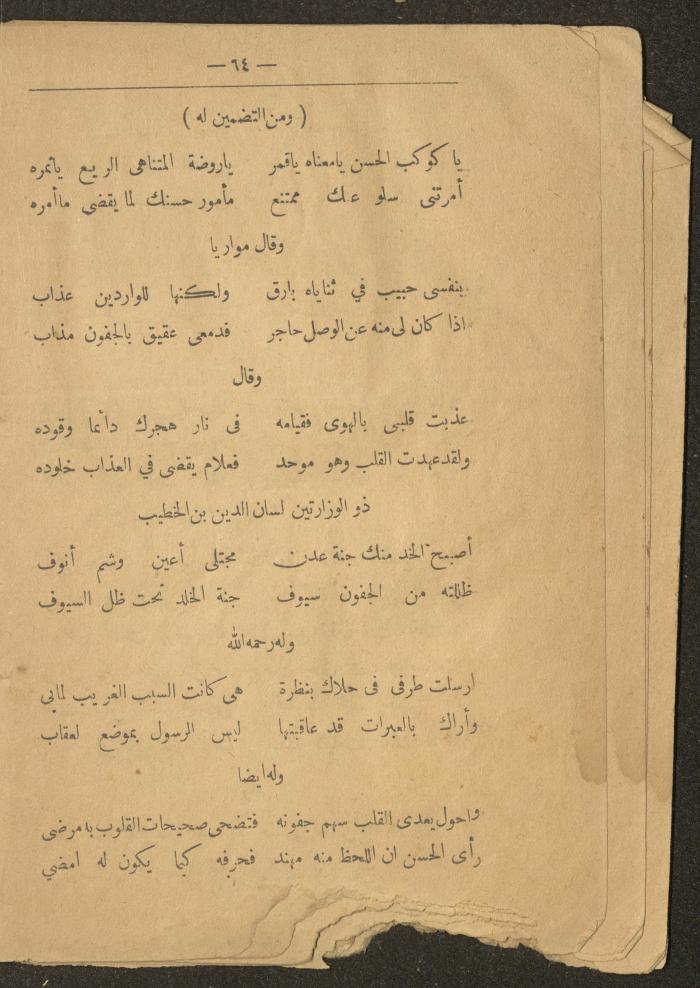 — ٦٤ —
( ومن التضمين له )
يا كوكب الحسن يامعناه ياقمر ياروضة المتناهى الريع ياثمره
أمرتنى سلو عنك ممتنع مأمور حسنك لما يقضى ماأمره
وقال مواريا
بنفسى حبيب في ثناياه بارق ولكنها للواردين عذاب
اذا كان لى منه عن الوصل حاجر فدمعى عقيق بالجفون مذاب
وقال
عذبت قلبى بالهوى فقيامه فى نار هجرك دائما وقوده
ولقد عهدت القلب وهو موحد فعلام يقضى في العذاب خلوده
ذو الوزارتين لسان الدين بن الخطيب
أصبح الخد منك جنة عدن مجتلى أعين وشم أنوف
ظللته من الجفون سيوف جنة الخلد تحت ظل السيوف
وله رحمه الله
ارسلت طرفى فى حلاك بنظرة هى كانت السبب الغريب لمابى
وأراك بالعبرات قد عاقبتها ليس الرسول بموضع لعقاب
وله ايضا
واحول يعدى القلب سهم جفونه فتضحى صحيحات القلوب به مرضى
رأى الحسن ان اللحظ منه مهند فحرفه كيما يكون له امضي